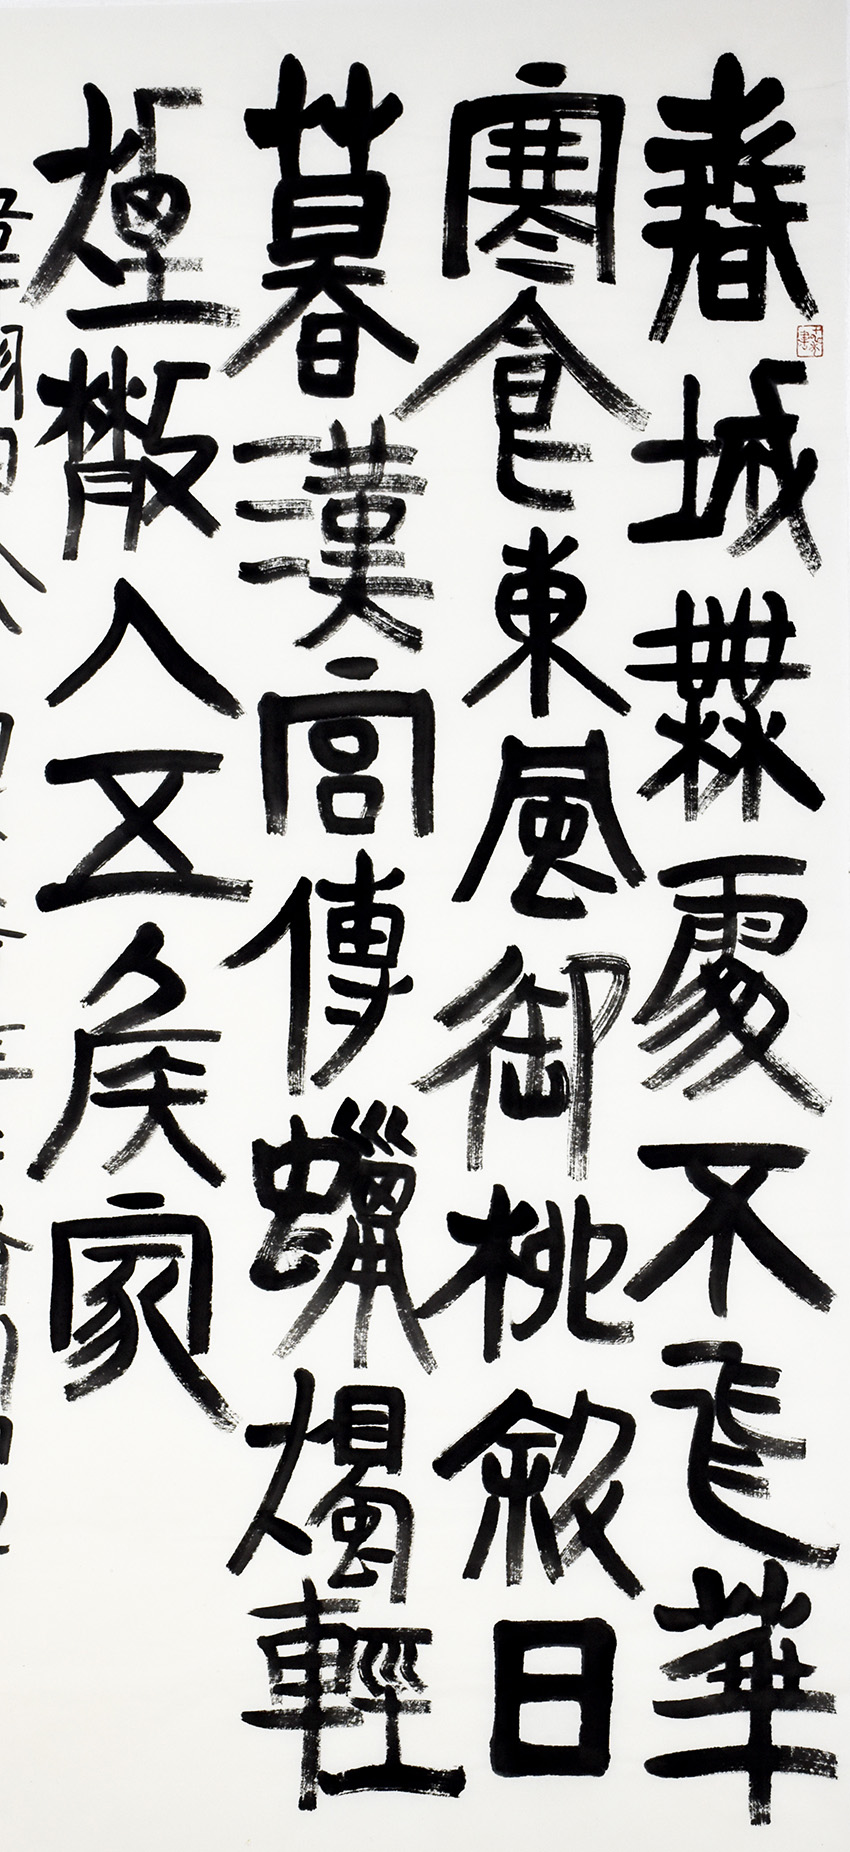 春城無處不飛華
寒食東風御柳斜日
暮漢宮傳蠟燭輕
煙散入五侯家